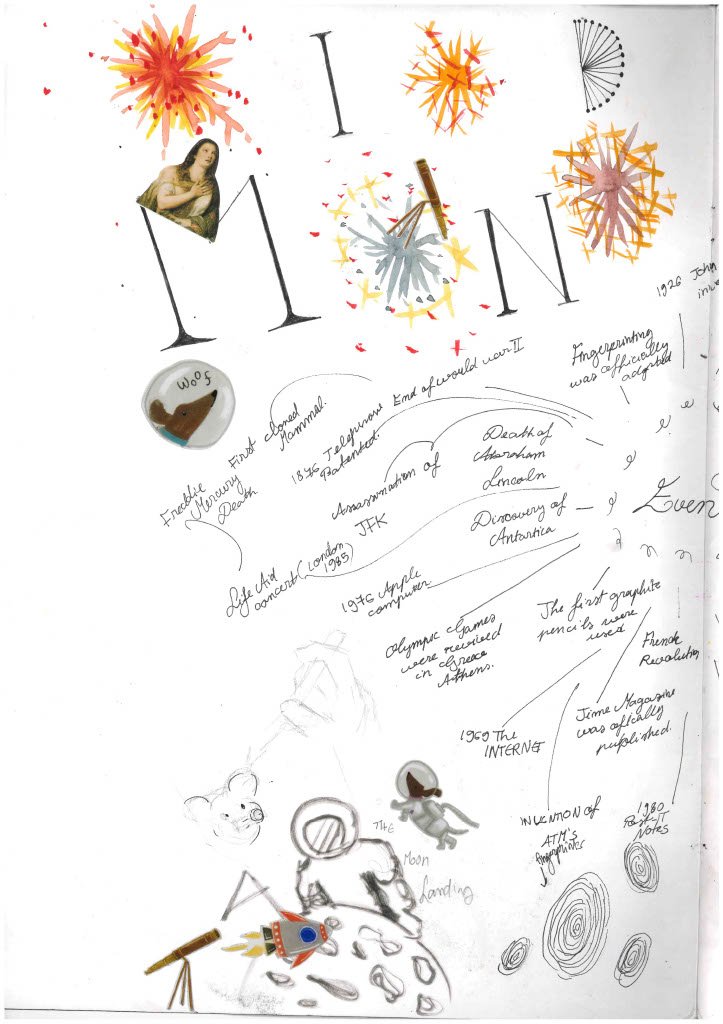 I D
M N
WOOF
1926 John
inve
Fingerprinting
was officially
adopted
End of world war II
First cloned
Mammal.
1876 Telephone
Patented.
Freddie
Mercury
Death
Assassination of
JFK
Death of
Abraham
Lincoln
Even
Discovery of
Antartica
Life Aid
concert (London
1985)
1976 Apple
computer
Olympic Games
were revived
in Greece
Athens.
The first graphite
pencils were
used
French
Revolution
1969 The
INTERNET
Time Magazine
was officially
published.
INVENTION of
ATM's
fingerprints
1980
Post-IT
Notes
THE
Moon
Landing